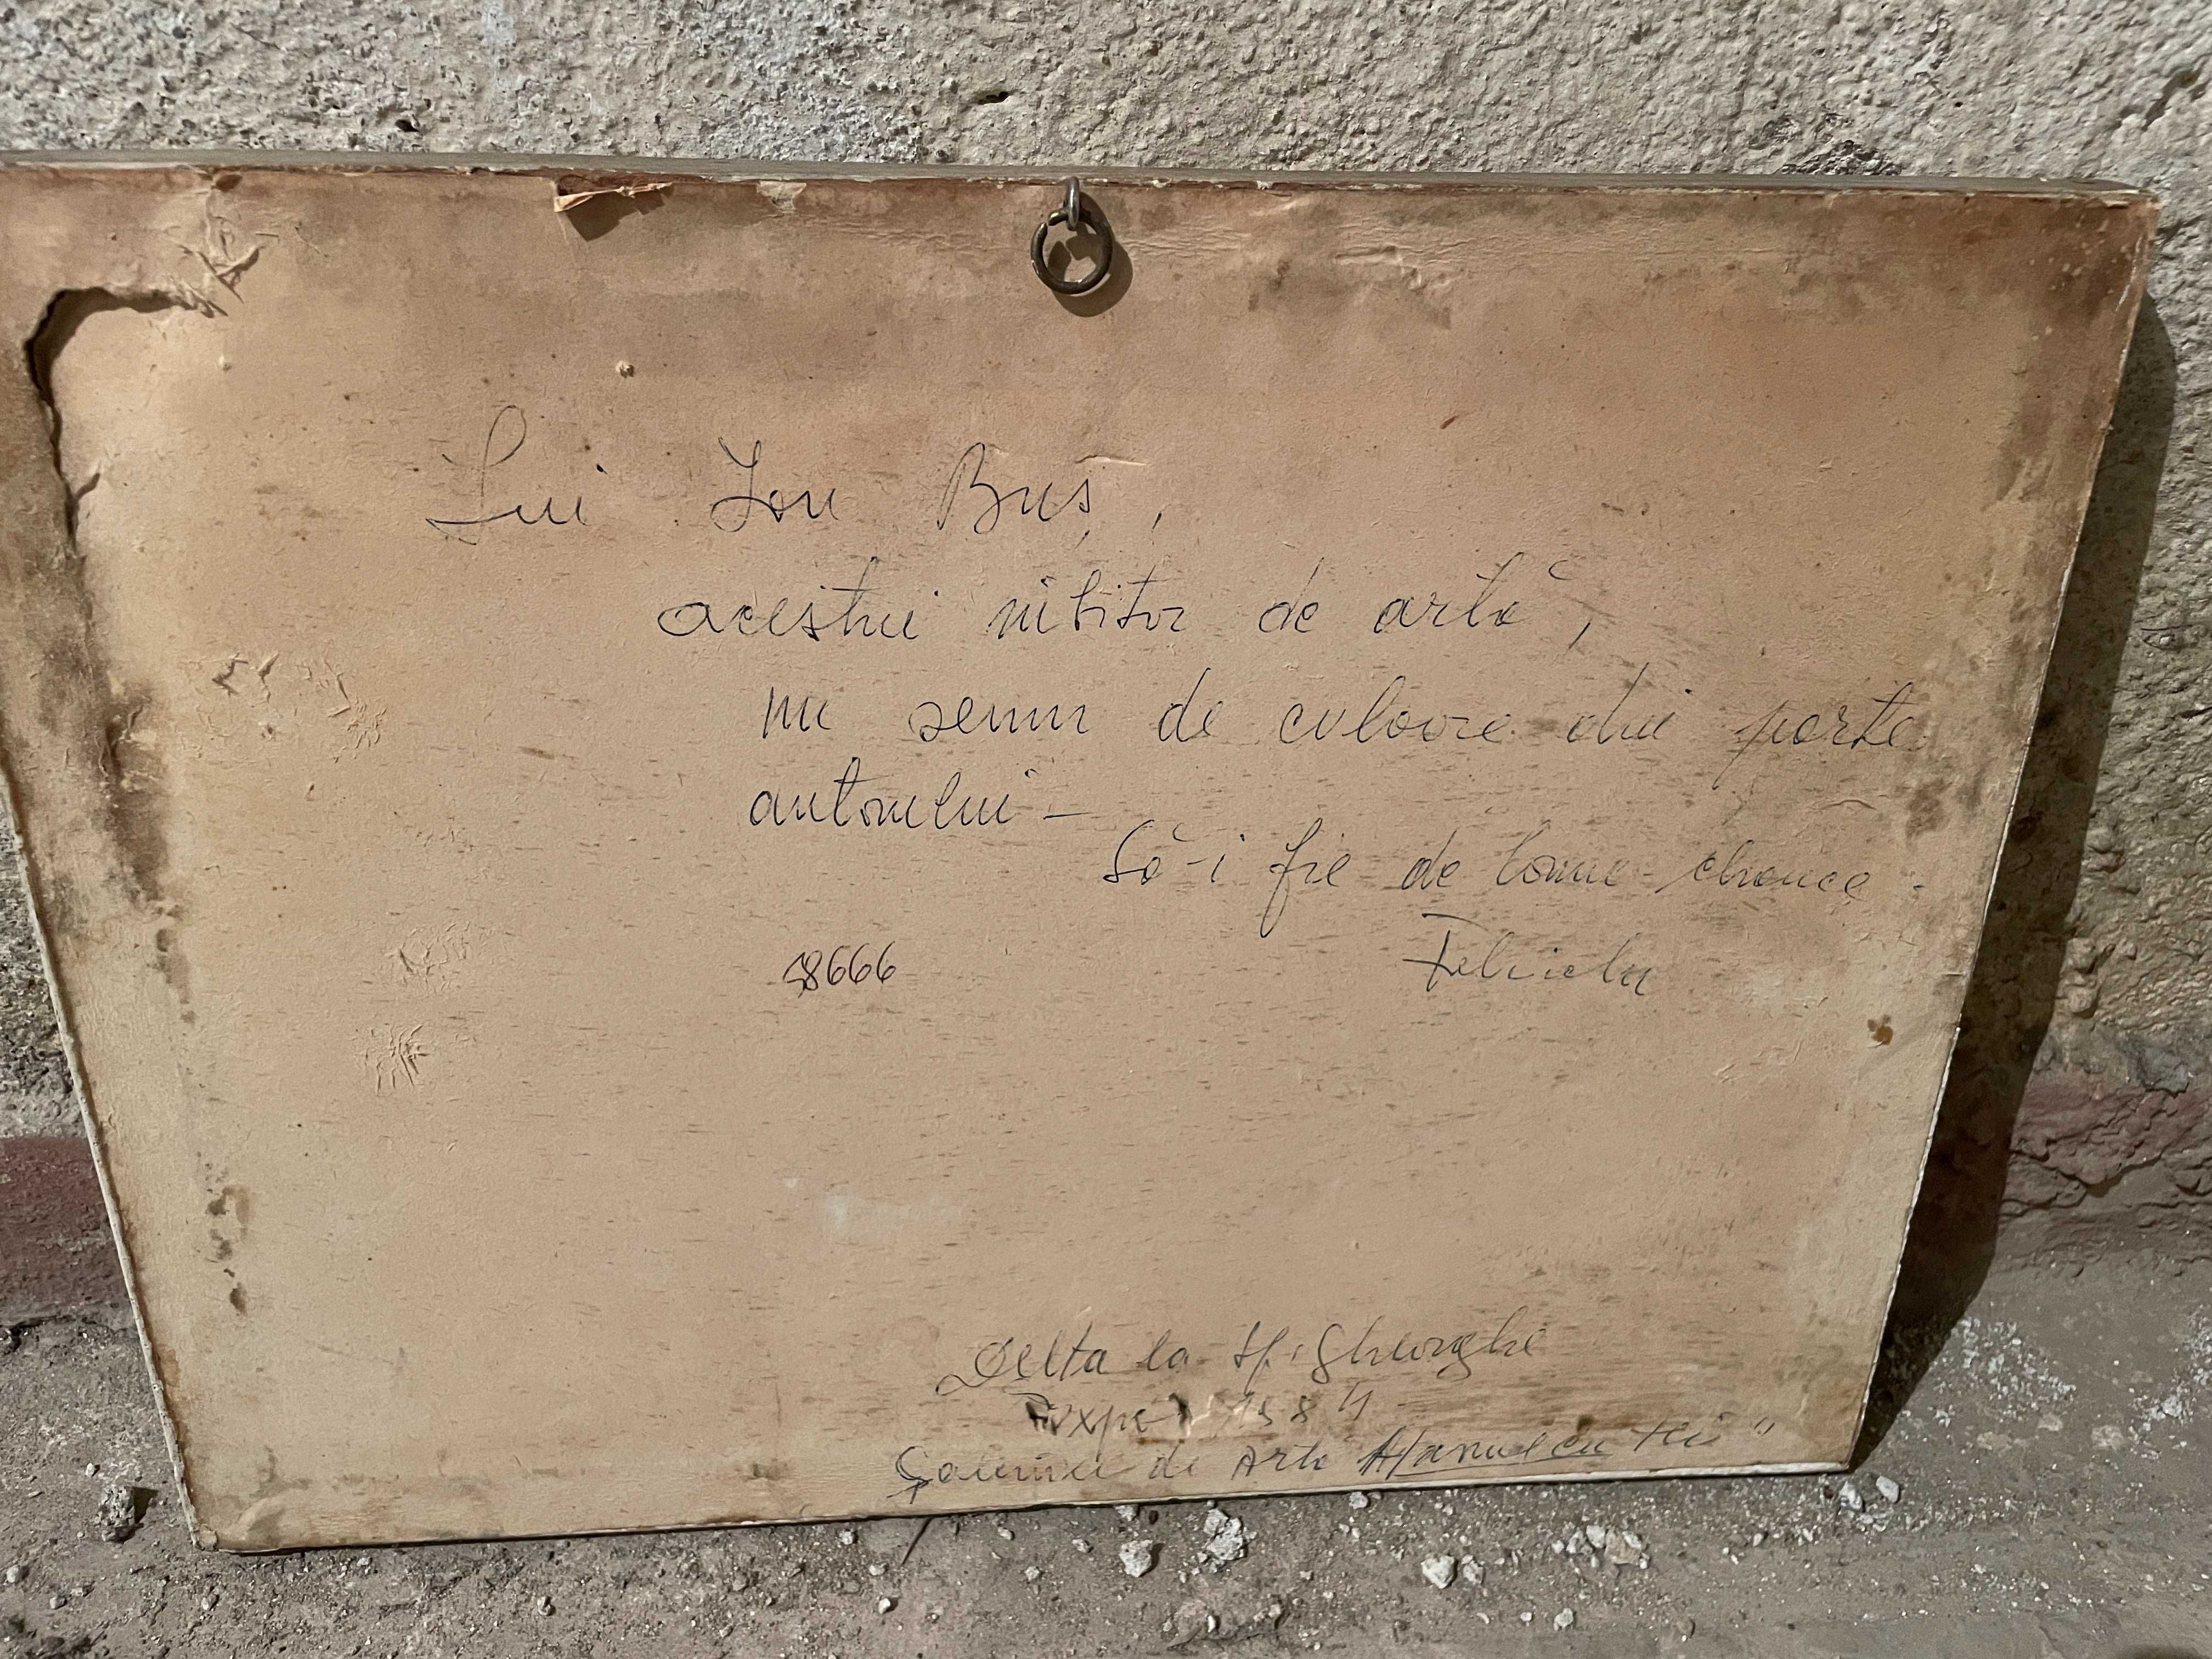 Lui Ion Buș,
acestui iubitor de artă,
un semn de culoare din partea
autorului -
Să-i fie de bună chance.
18666
Delta la Sf. Gheorghe
Expo 1984
de Artă